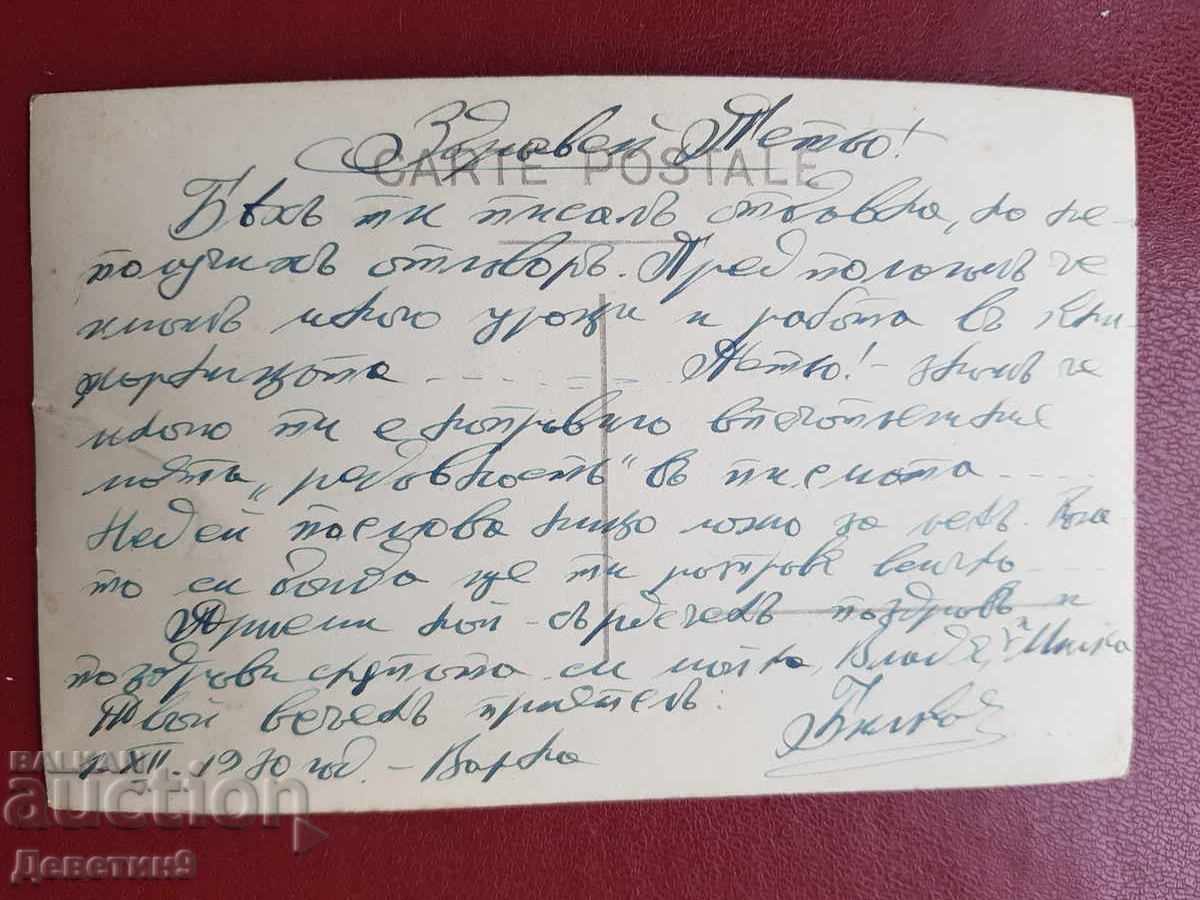 Здравей Петьо!
CARTE POSTALE
Бѣхъ ти писалъ отдавна, но не
получихъ отговоръ. Предполагамъ че
имашъ много уроци и работа въ кни-
жарницата ........ Петьо! - зная че
много ти е направило впечатление
моята „редовность“ въ писмата ....
Недей помисля нищо лошо за менъ. Кога-
то си дойда ще ти разправя всичко ....
Приеми най-сърдеченъ поздравъ и
поздрави майка, Владя, и Милка
Твой вѣченъ приятель:
XII. 1930 год. - Варна
BALKAN
auction
Деветин9